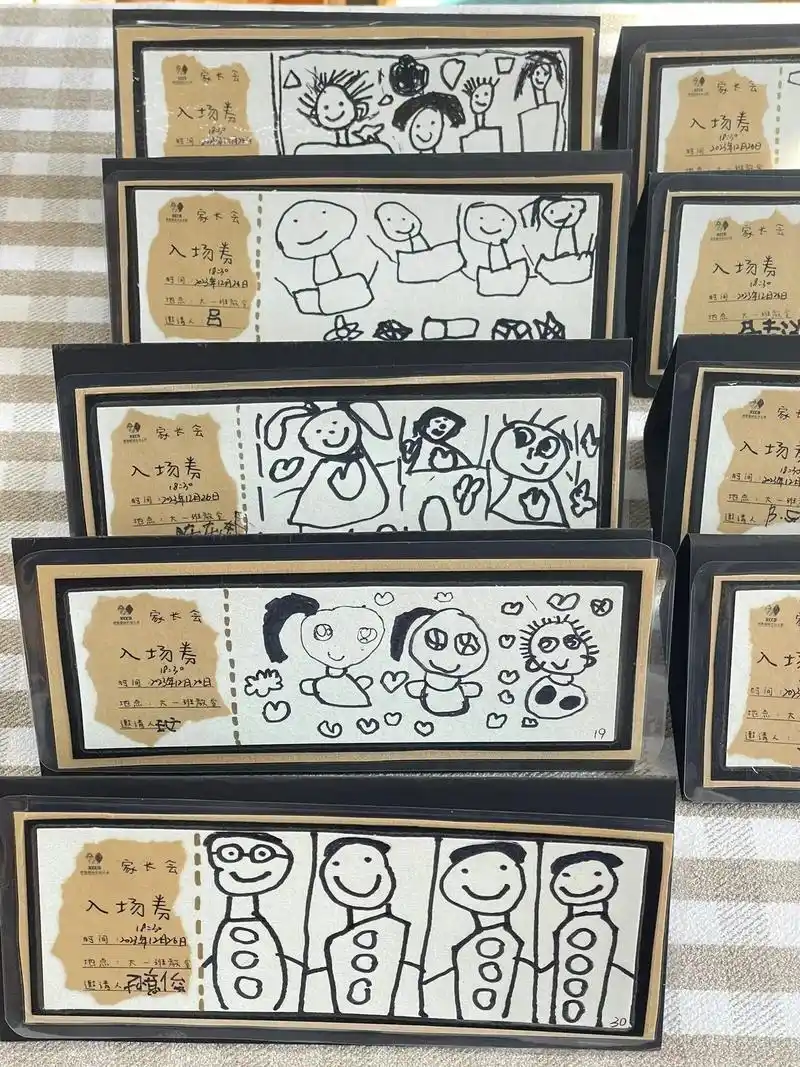 家长会
入场券
18:30
时间:2023年12月26日
家长会
入场券
18:30
时间:2023年12月26日
地点:大一班教室
邀请人 吕
家长会
入场券
18:30
时间:2023年12月26日
地点:大一班教室
家长会
入场券
18:30
时间:2023年12月26日
地点:大一班教室
邀请人
19
家长会
入场券
18:30
时间:2023年12月26日
地点:大一班教室
邀请人
30
家长会
入场券
18:30
时间:2023年12月26日
家长会
入场券
18:30
时间:2023年12月26日
地点:大一班教室
家长
入场
18:30
时间:2023年12
地点:大一班
邀请人
家长
入
18:30
时间:2023
地点:大一
邀请人: